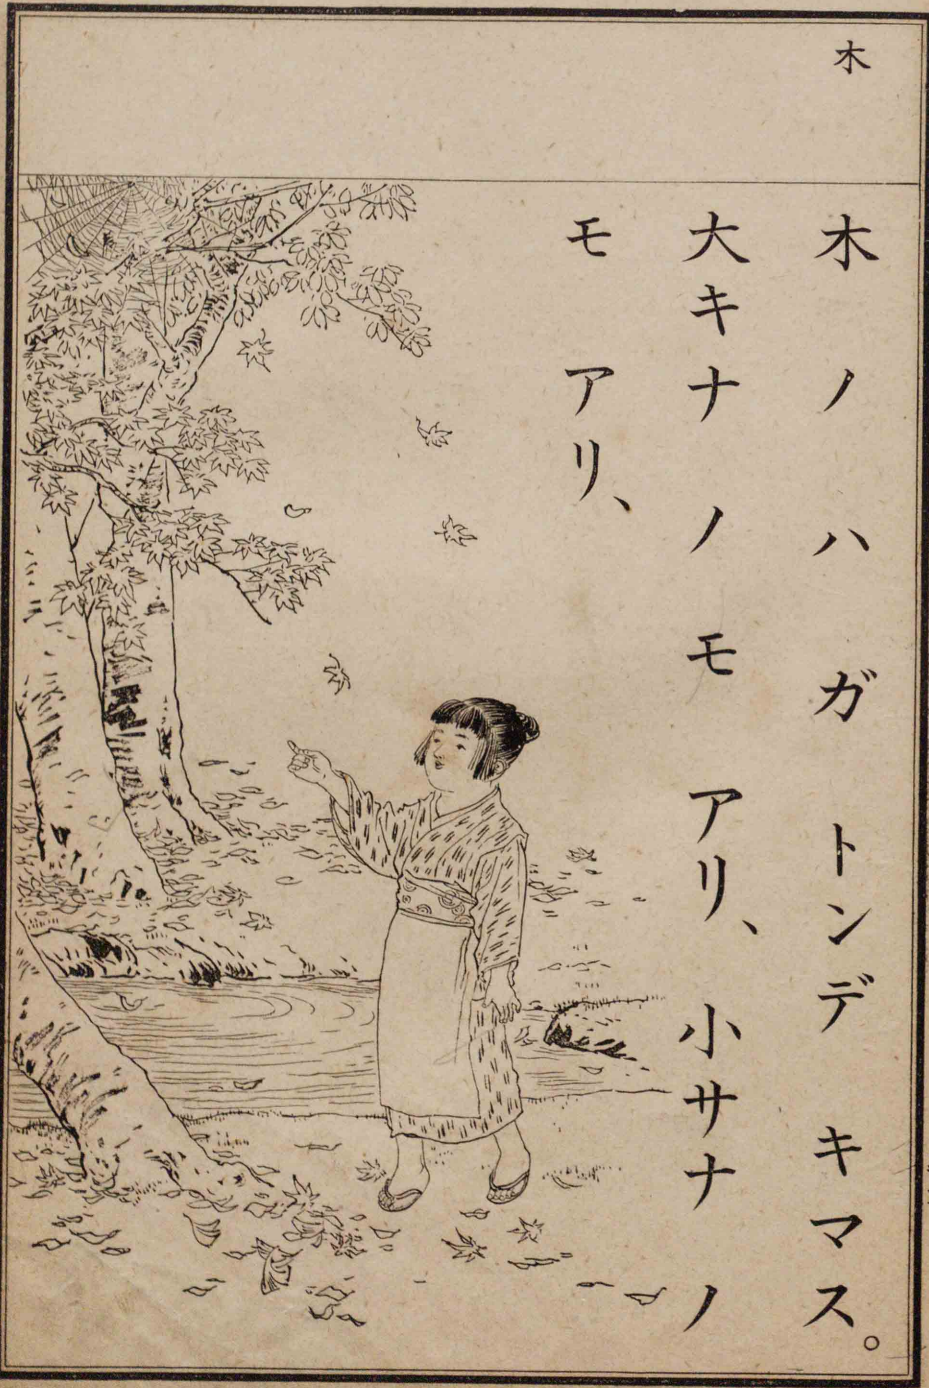 木
木ノハガトンデキマス。
大キナノモアリ、小サナノ
モアリ、